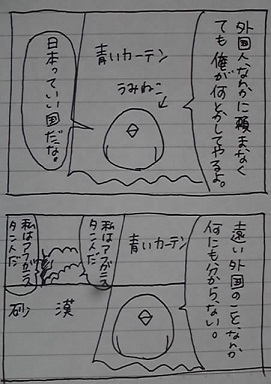 外国人なんかに頼まなく
ても俺が何とかしてやるよ。
青いカーテン
うみねこ
日本っていい国だな。
遠い外国のことなんか
何にも分からない。
青いカーテン
私はアフガニス
タン人だ
私はアフガニス
タン人だ
砂漠